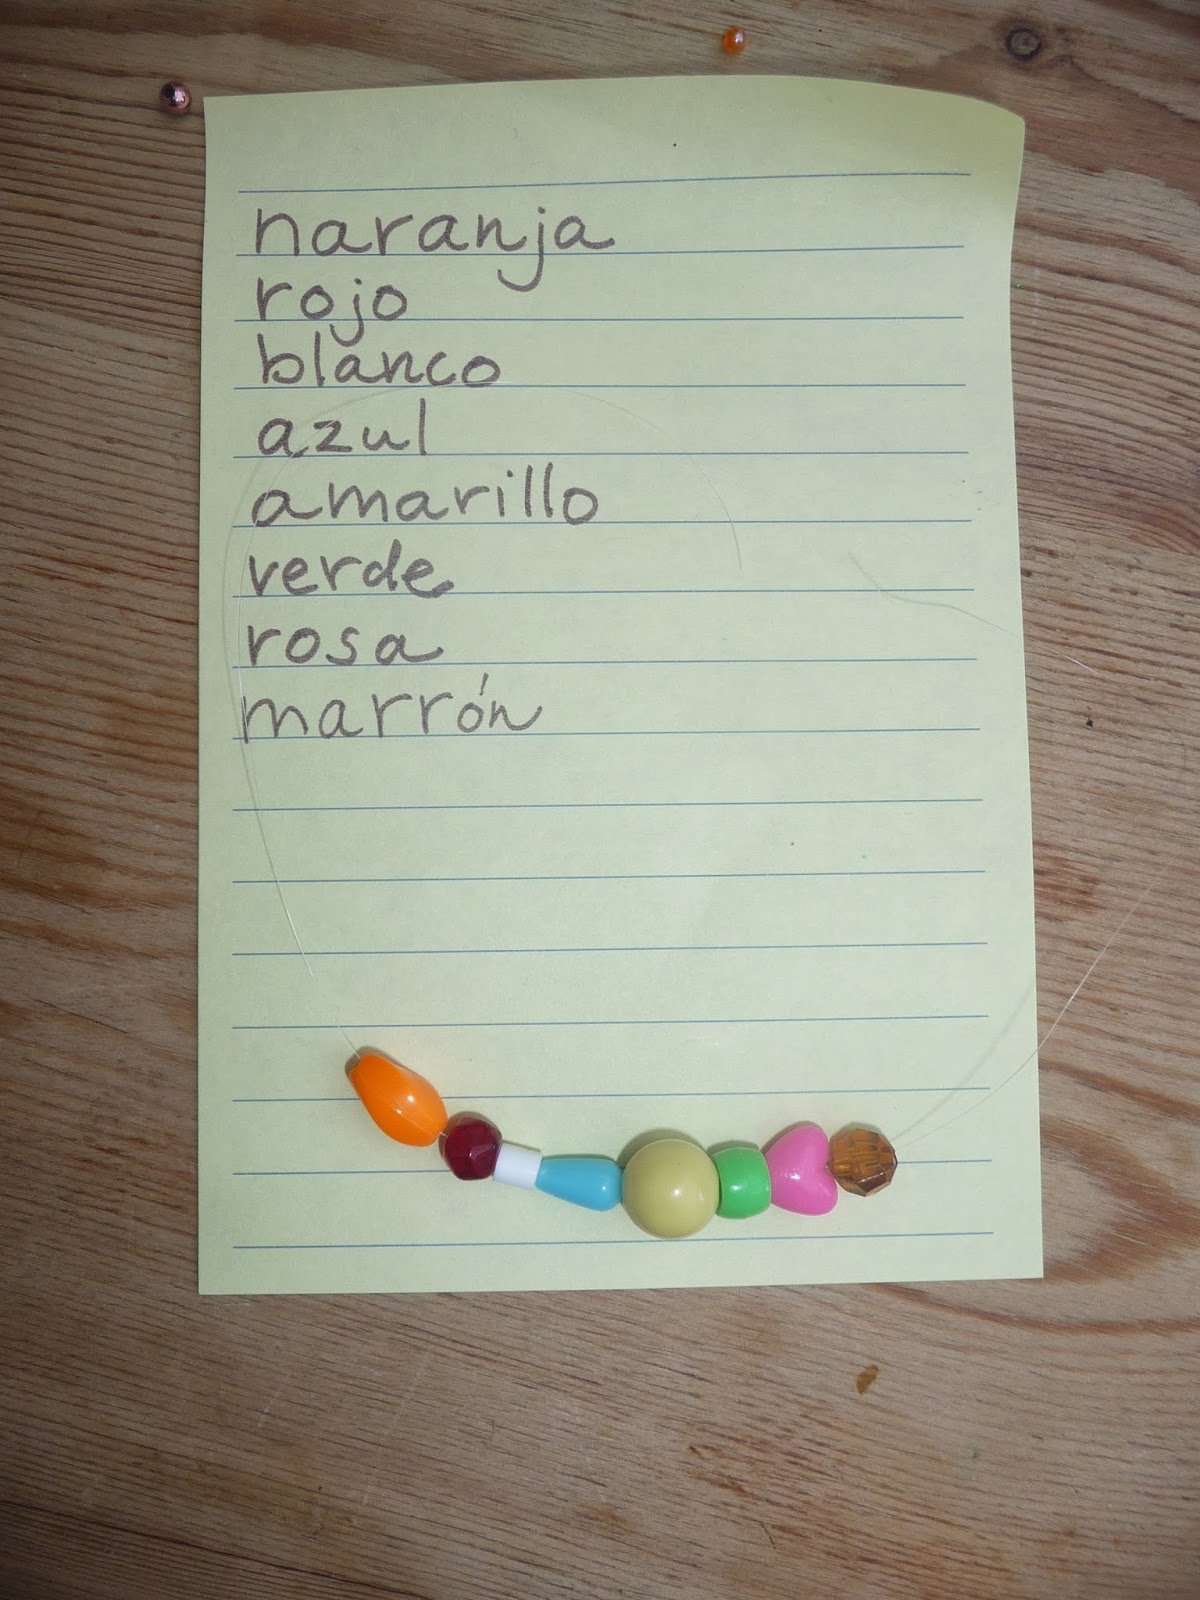 naranja
rojo
blanco
azul
amarillo
verde
rosa
marrón